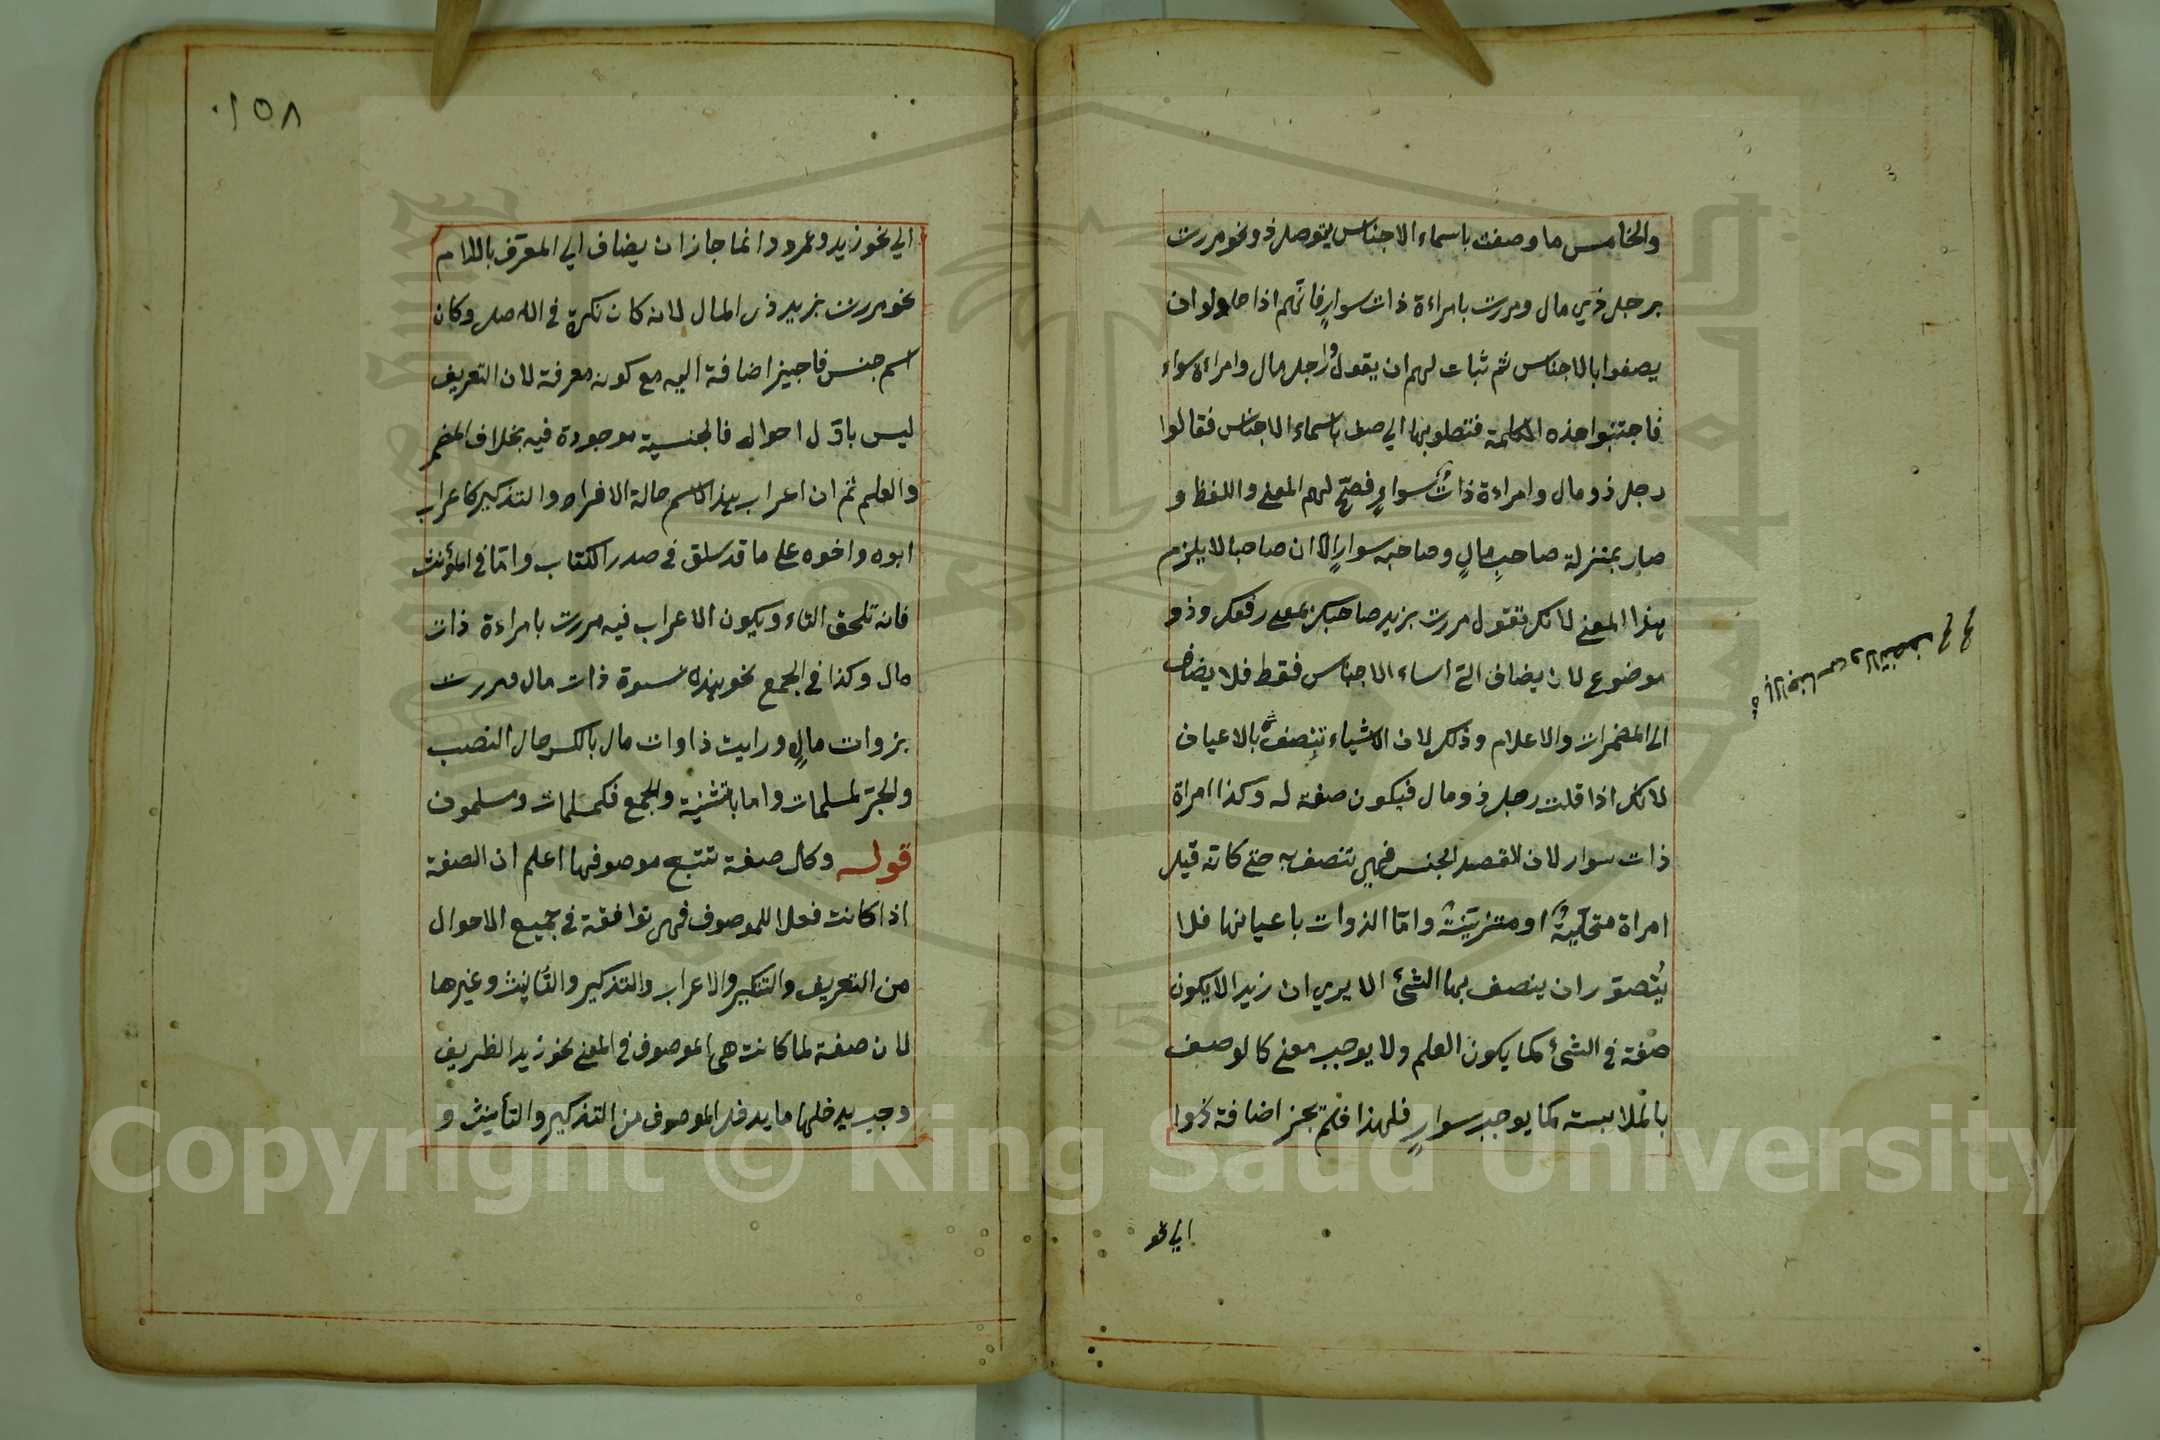 والخامس ما وصفت باسماء الاجناس يتوصل ذو نحو مررت
برجل ذي مال ومررت بامراءة ذات سوارٍ فانّهم اذا حاولوا ان
يصفوا بالاجناس ثم ثبات لهم ان يقولوا رجل مال وامراة سواء
فاجتنبوا هذه الكلمة فتصلو بها الي صف باسماء الاجناس فقالوا
رجل ذو مال وامراءة ذاتُ سوارٍ فصحّ لهم المعني واللفظ و
صار بمنزلة صاحبِ مالٍ وصاحبه سوارٍ الا ان صاحبا لا يلزم
هذا المعني لانك تقول مررت بزيد صاحبك بمعني رفعك وذو
موضوع لان يضاف الي اساء الاجناس فقط فلا يضاف
الي المضمرات والاعلام وذلك لان الاشياء تتصف بالاعيان
بالاجناس ولا تتصف
لانك اذا قلت رجل ذو مال فيكون صفة له وكذا امراة
ذات سوار لان القصد الجنس فهي تتصف به حتي كانه قيل
امراة متحلّيةٌ او متزيّنةٌ وامّا الذوات باعيانها فلا
يُتصوّر ان يتصف بها الشئ الا يري ان زيدا لا يكون
صفة في الشئ كما يكون العلم ولا يوجب معني كالوصف
بالملابسة كما يوجب سوارٍ فلهذا فلم يجز اضافة ذوا
الي نحو
١٥٨
الي نحو زيد وعمرو وانما جاز ان يضاف الي المعرّف باللام
نحو مررت بزيد ذي المال لانه كان نكرة في الاصل وكان
اسم جنس فاجيز اضافة اليه مع كونه معرفة لان التعريف
ليس باوّل احواله فالجنسية موجودة فيه بخلاف المضمر
والعلم ثم ان اعراب هذا الاسم حالة الافراد والتذكير كاعراب
ابوه واخوه علي ما قد سلق في صدر الكتاب وامّا في المؤنث
فانه تلحق التاء ويكون الاعراب فيه مررت بامراءة ذات
مال وكذا في الجمع نحو هذه نسوة ذات مال ومررت
بزوات مالٍ ورايت ذاوات مال بالكسر حال النصب
والجرّ لمسلمات واما بالتثنية والجمع فكمسلمات ومسلمون
قوله وكل صفة تتبع موصوفها اعلم ان الصفة
اذا كانت فعلا للموصوف فهي توافقة في جميع الاحوال
من التعريف والتنكير والاعراب والتذكير والتأنيث وغيرها
لان صفة لما كانت هي الموصوف في المعني نحو زيد الظريف
وجب يدخلها ما يدخل الموصوف من التذكير والتأنيث و
Copyright © King Saud University
1957